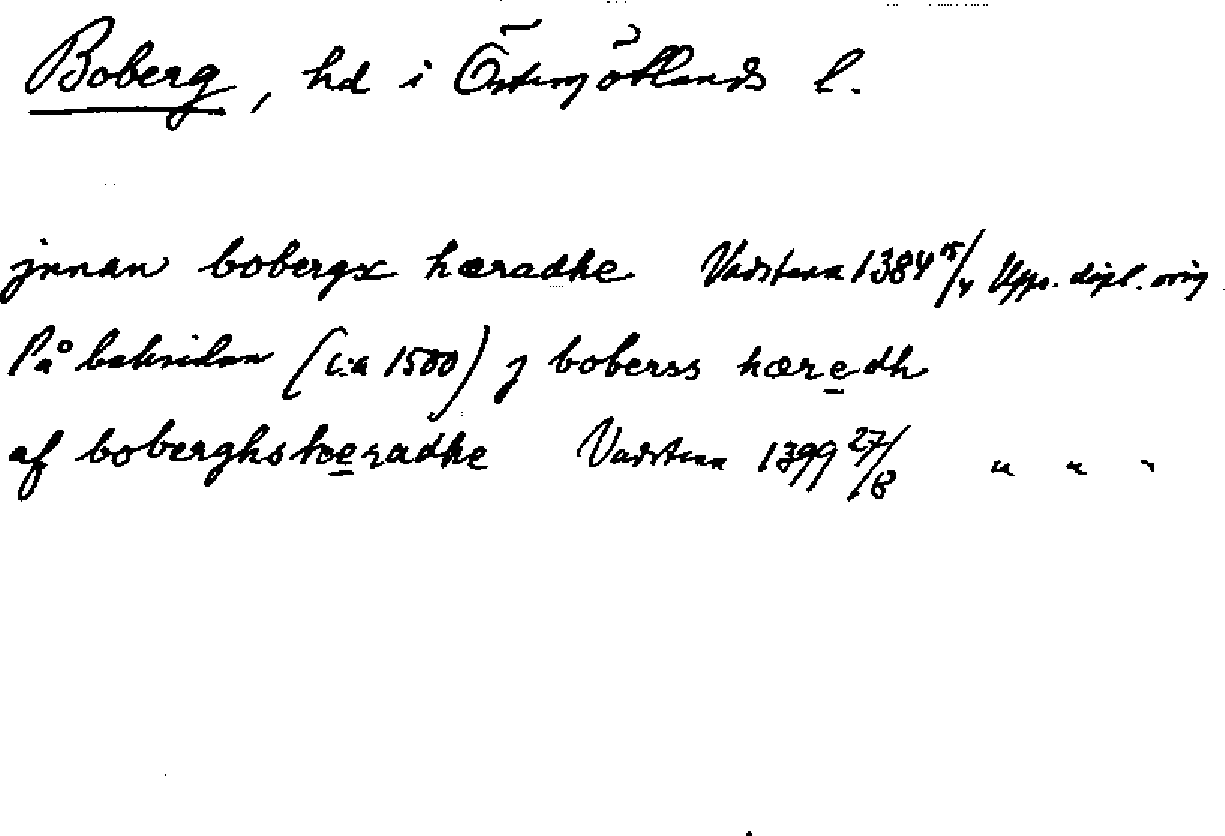 Boberg, hd i Östergötlands l.
jnnan bobergx hæradhe Vadstena 1384 15/4 Upps. dipl. orig
På baksidan (ca 1500) j boberss hæredh
af boberghshæradhe Vadstena 1399 27/8 " " "